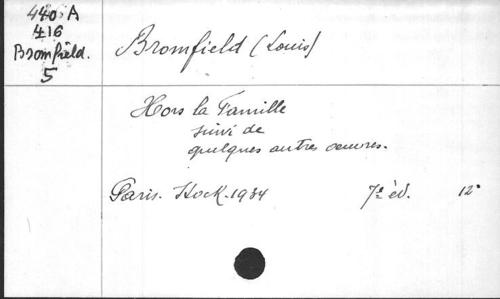 440 A
416
Bromfield.
5
Bromfield (Louis)
Hors la Famille
suivi de
quelques autres oeuvres.
Paris. Stock. 1934 7e éd. 12°